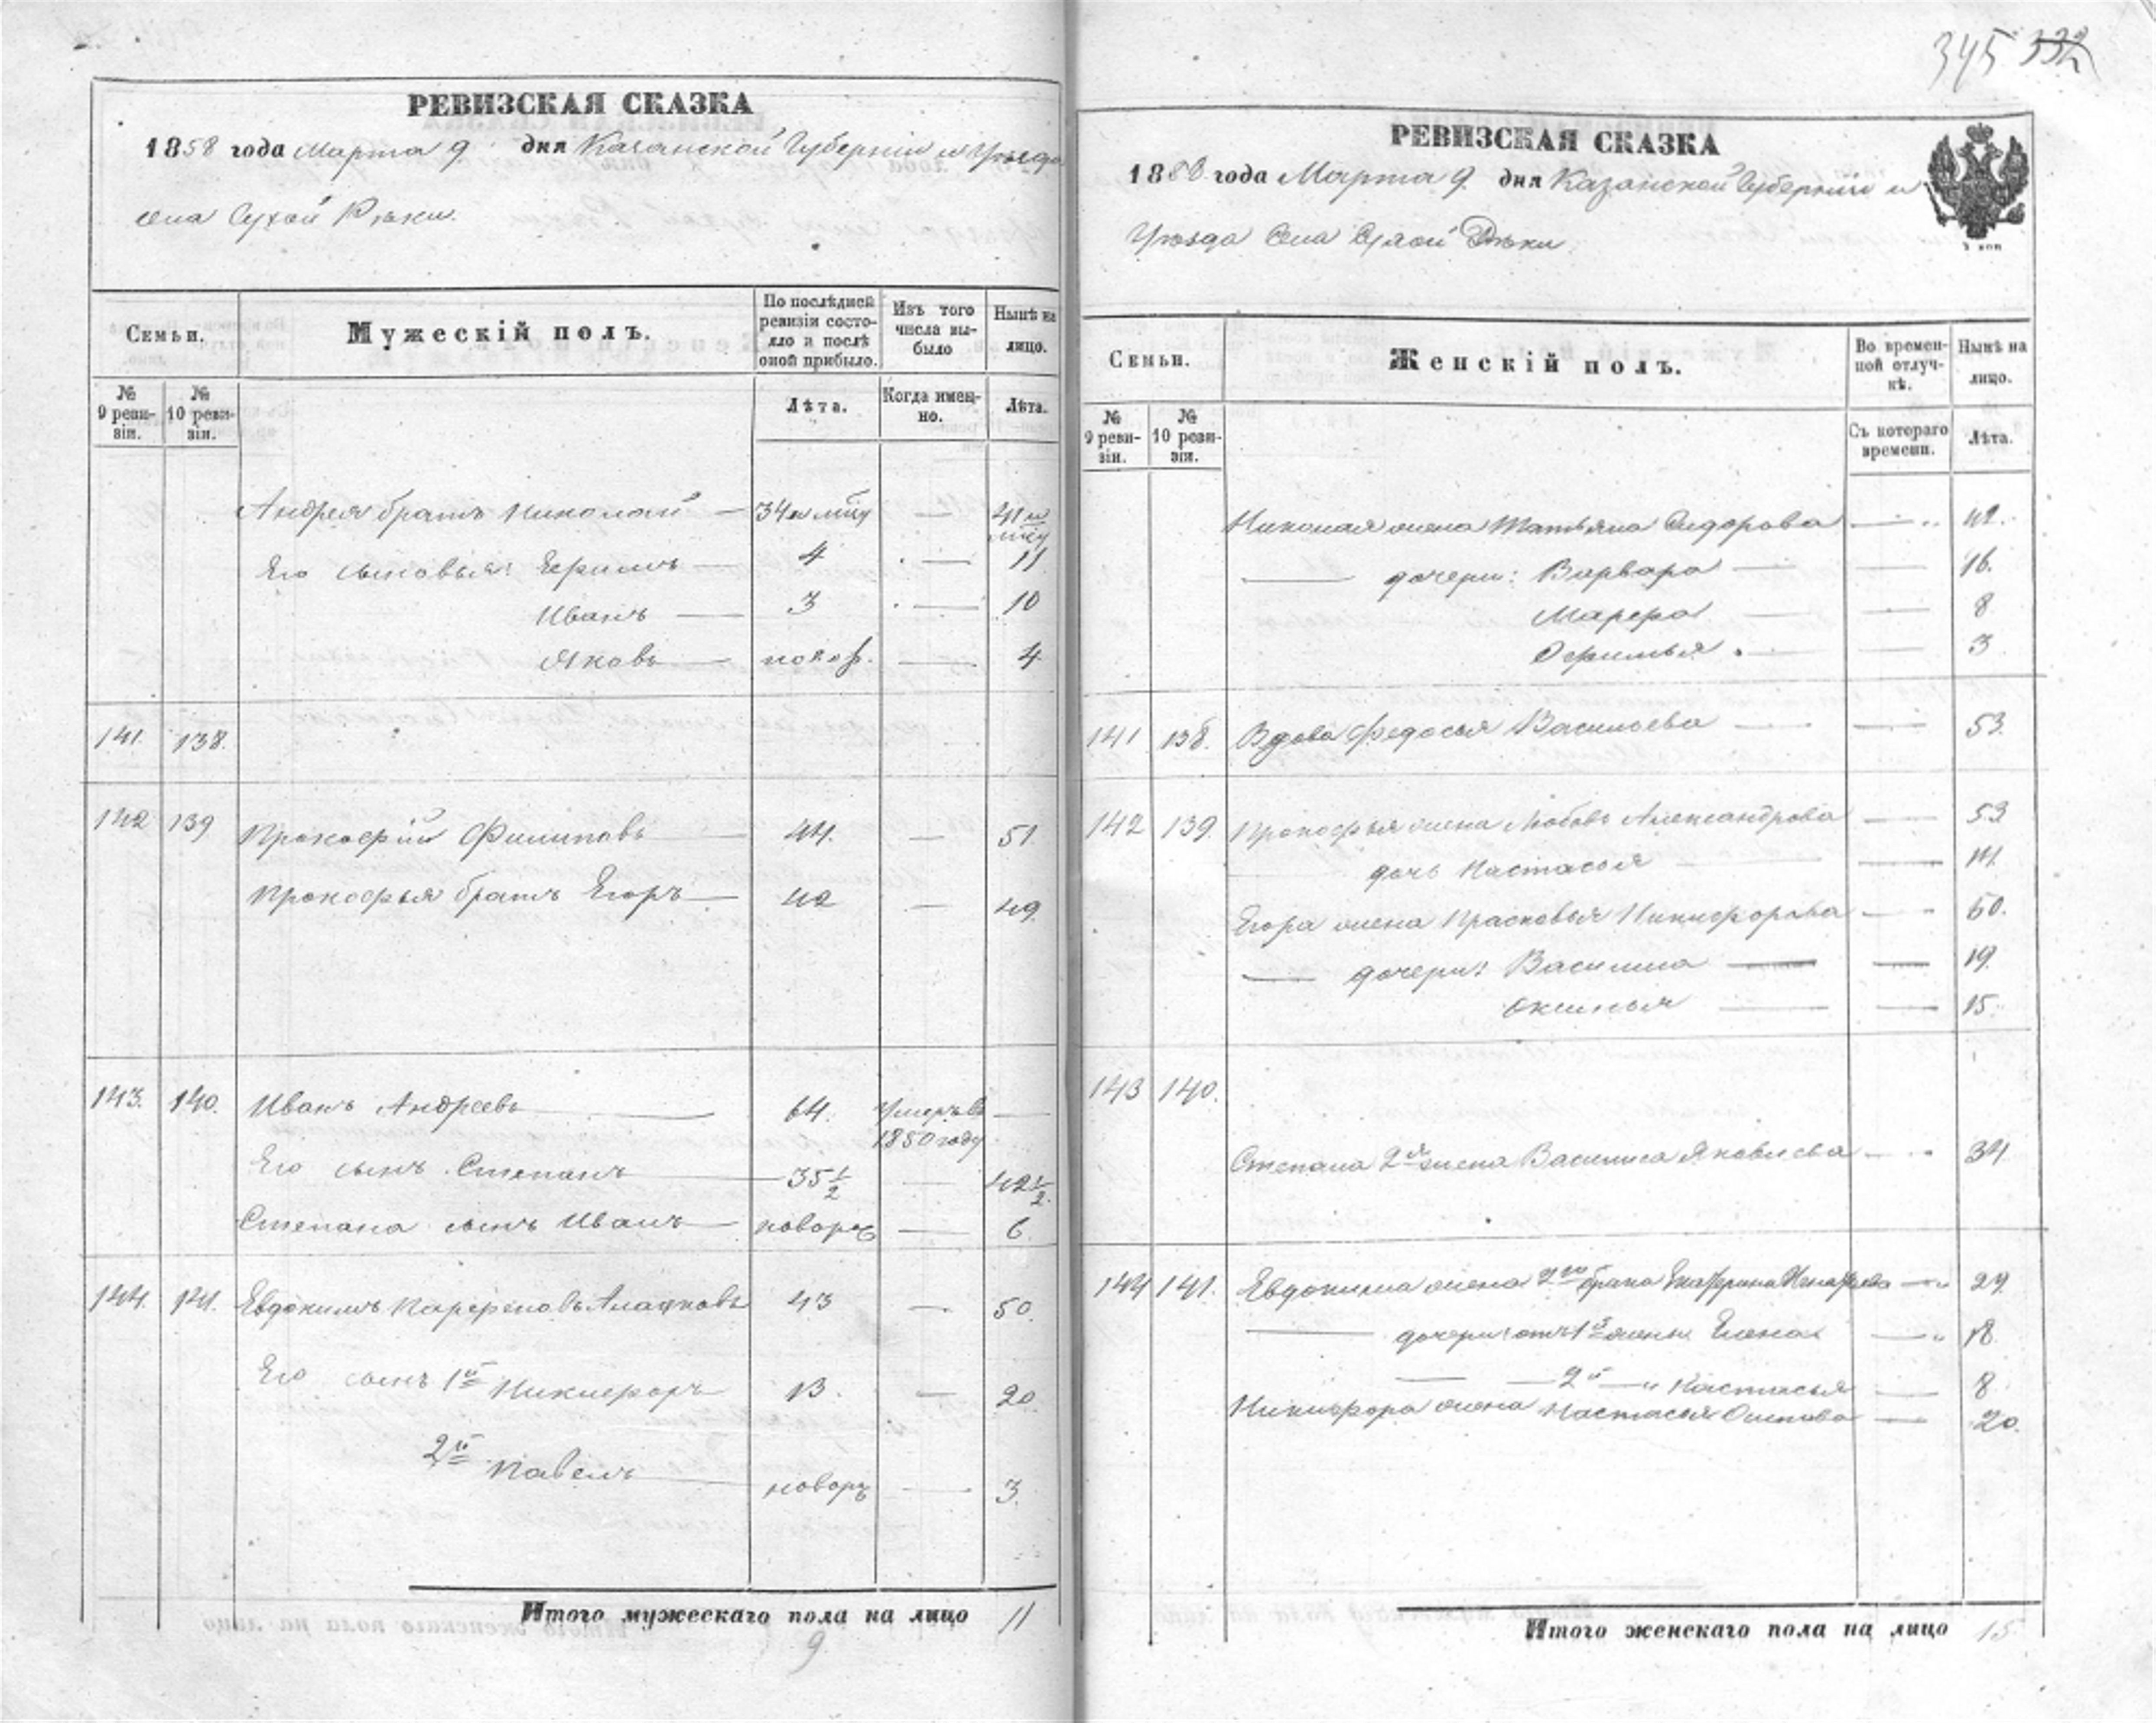 345 332
РЕВИЗСКАЯ СКАЗКА
1858 года Марта 9 дня Казанской Губернiи и Уѣзда
села Сухой Рѣки.
Семьи.
Мужескій полъ.
По послѣдней ревизіи состояло и послѣ оной прибыло.
Изъ того числа выбыло
Нынѣ на лицо.
№ 9 ревизіи.
№ 10 ревизіи.
Лѣта.
Когда именно.
Лѣта.
Андрея братъ Николай — 34 и мцу — 41 и мцу
Его сыновья: Ефимъ — 4 — 11
Иванъ — 3 — 10
Яковъ — новор. — 4
141. 138.
142 139 Прокофій Филиповъ — 44. — 51.
Прокофья братъ Егоръ — 42 — 49.
143. 140. Иванъ Андреевъ — 64. Умеръ въ 1850 году —
Его сынъ Степанъ — 35½ — 42½.
Степана сынъ Иванъ — новорж — 6.
144. 141. Евдокимъ Парфеновъ 43 — 50.
Его сынъ 1й Никифоръ 13. — 20.
2й Павелъ — новорж — 3.
Итого мужескаго пола на лицо 11
9.
РЕВИЗСКАЯ СКАЗКА
1858 года Марта 9. дня Казанской Губерніи и
Уѣзда Села Сухой Рѣки.
Семьи.
Женскій полъ.
Во временной отлучкѣ.
Нынѣ на лицо.
№ 9 ревизіи.
№ 10 ревизіи.
Съ котораго времени.
Лѣта.
Николая жена Татьяна Сидорова — 42.
— дочери: Варвара — 16.
Марфа — 8
Офимья — 3
141 138. Вдова Федосья Васильева — 53.
142 139. Прокофья жена Любовь Александрова — 53
дочь Настасья — 14.
Егора жена Прасковья Никифорова — 50.
— дочери: Василиса — 19.
Оксинья — 15.
143 140.
Степана 2я жена Василиса Яковлева — 34
144 141. Евдокима жена 2го брака Екатерина — 29.
— дочери: отъ 1й жены Елена — 18.
— 2й — Настасья — 8
Никифора жена Настасья Осипова — 20.
Итого женскаго пола на лицо 15.